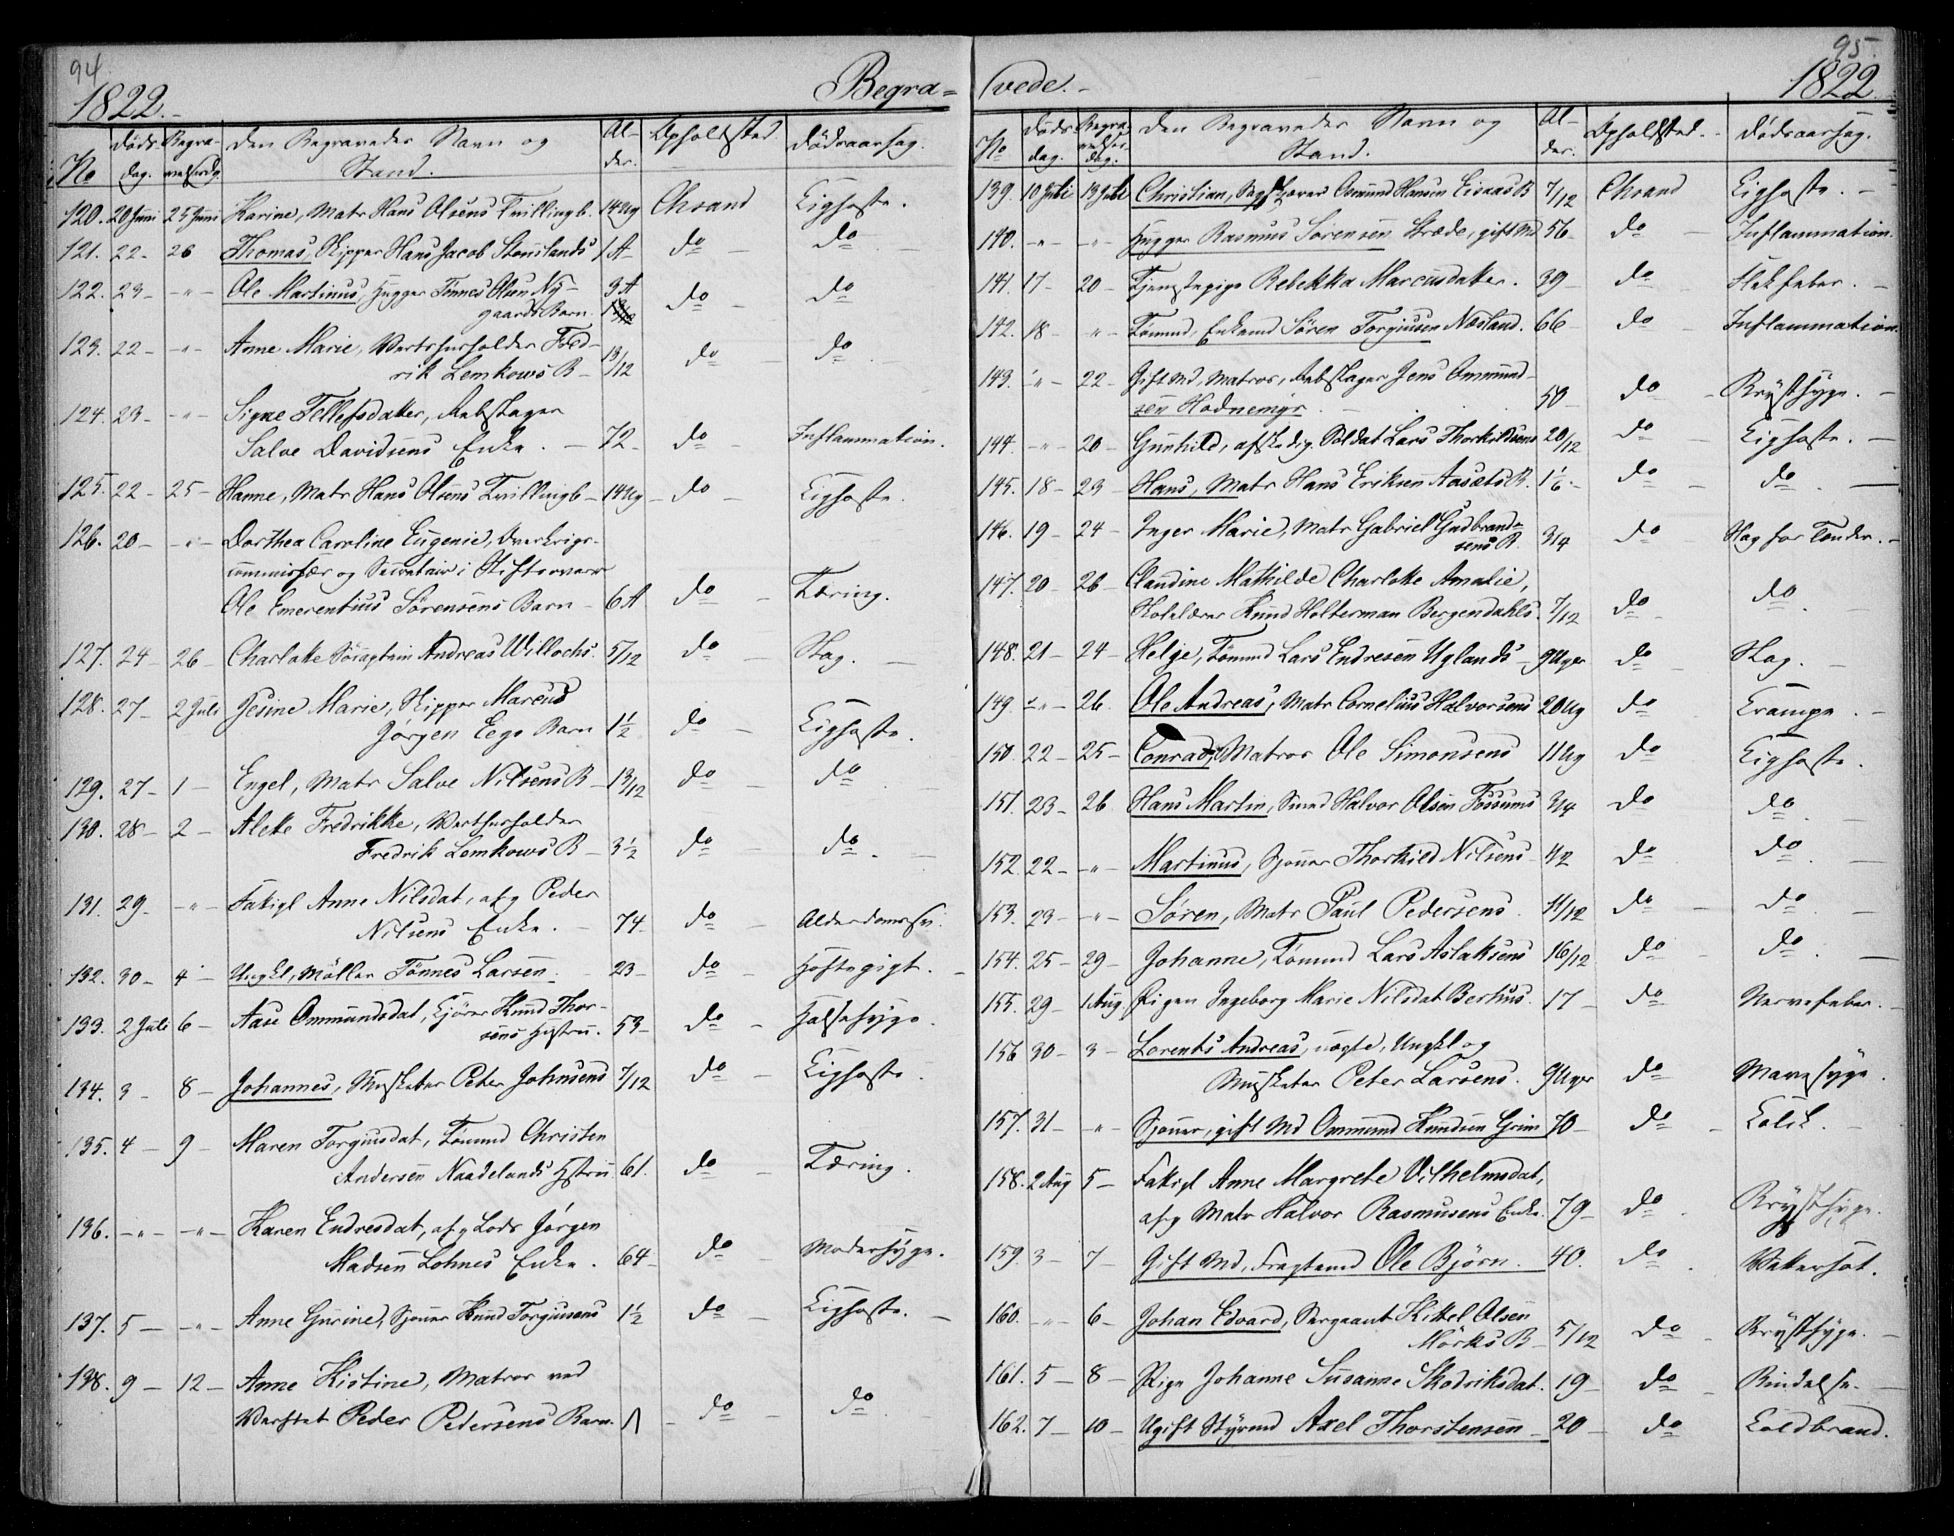 94
1822.
Begra=
No Døds dag. Begra- velsesdg. Den Begravedes Navn og Stand. Al- der. Opholdsted. Dødsaarsag.
120. 20 Juni 25 Juni Karine, Matr Hans Olsens Tvillingb. 14 Ug Chrsand Kighoste.
121. 22 - 26 Thomas, Skipper Hans Jacob Stensland's 1 A do do
122. 23 - " - Ole Martinus, Hugger Tönnes Olsen Ny-
gaards Barn. 3 A do do
123. 22 - " - Anne Marie, Vertshusholder Fred-
rik Lemkows B - 13/12 do do
124. 23 - " - Signe Tellefsdatter, Rebslager
Salve Davidsens Enke. - 72 - do Inflammation.
125. 22 - 25 - Hanne, Matr Hans Olsens Tvillingb - 14 Ug - do - Kighoste.
126. 20 - " - Dorthea Caroline Eugenie, Overkrigs-
commissær og Secretair i Stiftsoverr
Ole Emerentius Sörensens Barn - 6 A do - Tæring.
127. 24 - 26 - Charlotte Andreas Willochs. 5/12 do Slag.
128. 27 - 2 Juli Jesine Marie, Skipper Marcus
Jørgen Eegs Barn 1½ do - Kighoste.
129. 27 - 1 - Engel, Matr Salve Nilsens B - 13/12 do - do
130. 28 - 2 - Alette Fredrikke, Vertshusholder
Fredrik Lemkows B - 3½ do - do
131. 29. - " - Fatigl Anne Nilsdat, afg Peder
Nilsens Enke. - 74. do Alderdomssv.
132. 30 - 4 - Ungkl, Möller Tönnes Larsen. 23 - do - Hoftegigt.
133. 2 Juli 6 - Aase Ommundsdat, Kjører Knud Thor-
sens Hustru. 53 - do - Halssyge.
134. 3 - 8 - Johannes, Musketer Peter Johnsens 7/12 do - Kighoste.
135. 4 - 9 - Maren Torgiusdat, Tömmd Christen
Andersen Naadelands Hstru 61. do - Tæring.
136. - " - - " - Karen Endresdat, afg Lods Jørgen
Madsen Lohnes Enke. 64 - do - Modersyge.
137. 5 - - " - Anne Gurine, Sjouer Knud Torgiusens 1½ do - Kighoste.
138. 9 - 12 - Anne Kistine, Matros ved
Verftet Peder Pedersens Barn. 1 - do - do
95.
vede. -
1822
No Døds dag. Begra- velses- dag. Den Begravedes Navn og Stand. Al- der. Opholdsted. Dødsaarsag.
139. 10 Juli 13 Juli Christian, Osmund Hansen Eisaas B 7/12 Chrsand Kighoste. -
140. - " - - " - Hugger Rasmus Sørensen Stræde, gift Md 56 - do - Inflammation.
141. 17 - 20 - Tjenestepige Rebekka Marcusdatter. 39 - do - Flekfeber. -
142. 18 - " - Tömmd, Enkemd Sören Torgiusen Næsland. 66 - do - Inflammation.
143. - " - 22 - Gift Md, Matros, Rebslager Jens Ommund-
sen Hodnemyr. 50 - do - Brystsyge. -
144. - " - 20 - Gunhild, afskedig. Soldat Lars Thorkildsens 20/12 do Kighoste. -
145. 18 - 23 - Hans, Matr Hans Eriksen Aasets B. 1 1/6 - do - do. -
146. 19 - 24 - Inger Marie, Matr Gabriel Gudbrand-
sens B. 3/4 do - Slag for Tænder. -
147. 20 - 26 - Claudine Mathilde Charlotte Amalie,
Skolelærer Knud Holterman Bergendahls. 7/12 do - do.
148. 21 - 24 - Helge, Tömmd Lars Endresen Uglands - 9 Uger do - Slag. -
149. - " - 26. Ole Andreas, Matr Cornelius Halvorsens 20 Ug do Krampe. -
150. 22 - 25 - Conrad, Matros Ole Simonsens 11 Ug do - Kighoste.
151. 23 - 26 Hans Martin, Smed Halvor Olsen Fossums 3/4 do - do.
152. 22 - - " - Martinus, Sjouer Thorkild Nilsens 1/2 do - do. -
153. 23 - - " - Søren, Matr Paul Pedersens. 11/12 do - do. -
154. 25 - 29 - Johanne, Tömmd Lars Aslaksens 16/12 do - do. -
155. 29 - 1 Aug. Pigen Ingeborg Marie Nilsdat Bertius. 17 - do - Nervefeber. -
156 30 - 3 - Lorents Andreas, uægte, Ungkl og
Musketer Peter Larsens. 9 Uger do - Mavesyge.
157. 31 - - " - Sjouer, gift Md Ommund Knudsen Grim 70 - do - Kolik. -
158. 2 Aug 5 - Fatigl Anne Margrete Vilhelmsdat,
afg Matr Halvor Rasmusens Enke. 79 - do - Brystsyge.
159. 3 - 7 - Gift Md, Fragtemd Ole Bjørn. 40. do - Vattersot.
160. - " - 6 - Johan Edvard, Sergeant Kittel Olsen
Mörks B - 5/12 do - Brystsyge. -
161. 5 - 8 - Pige Johanne Susanne Skodriksdat. 19 - do - Bindelse. -
162. 7 - 10 - Ugift Styrmd Axel Thorstensen - 20 - do Koldbrand.